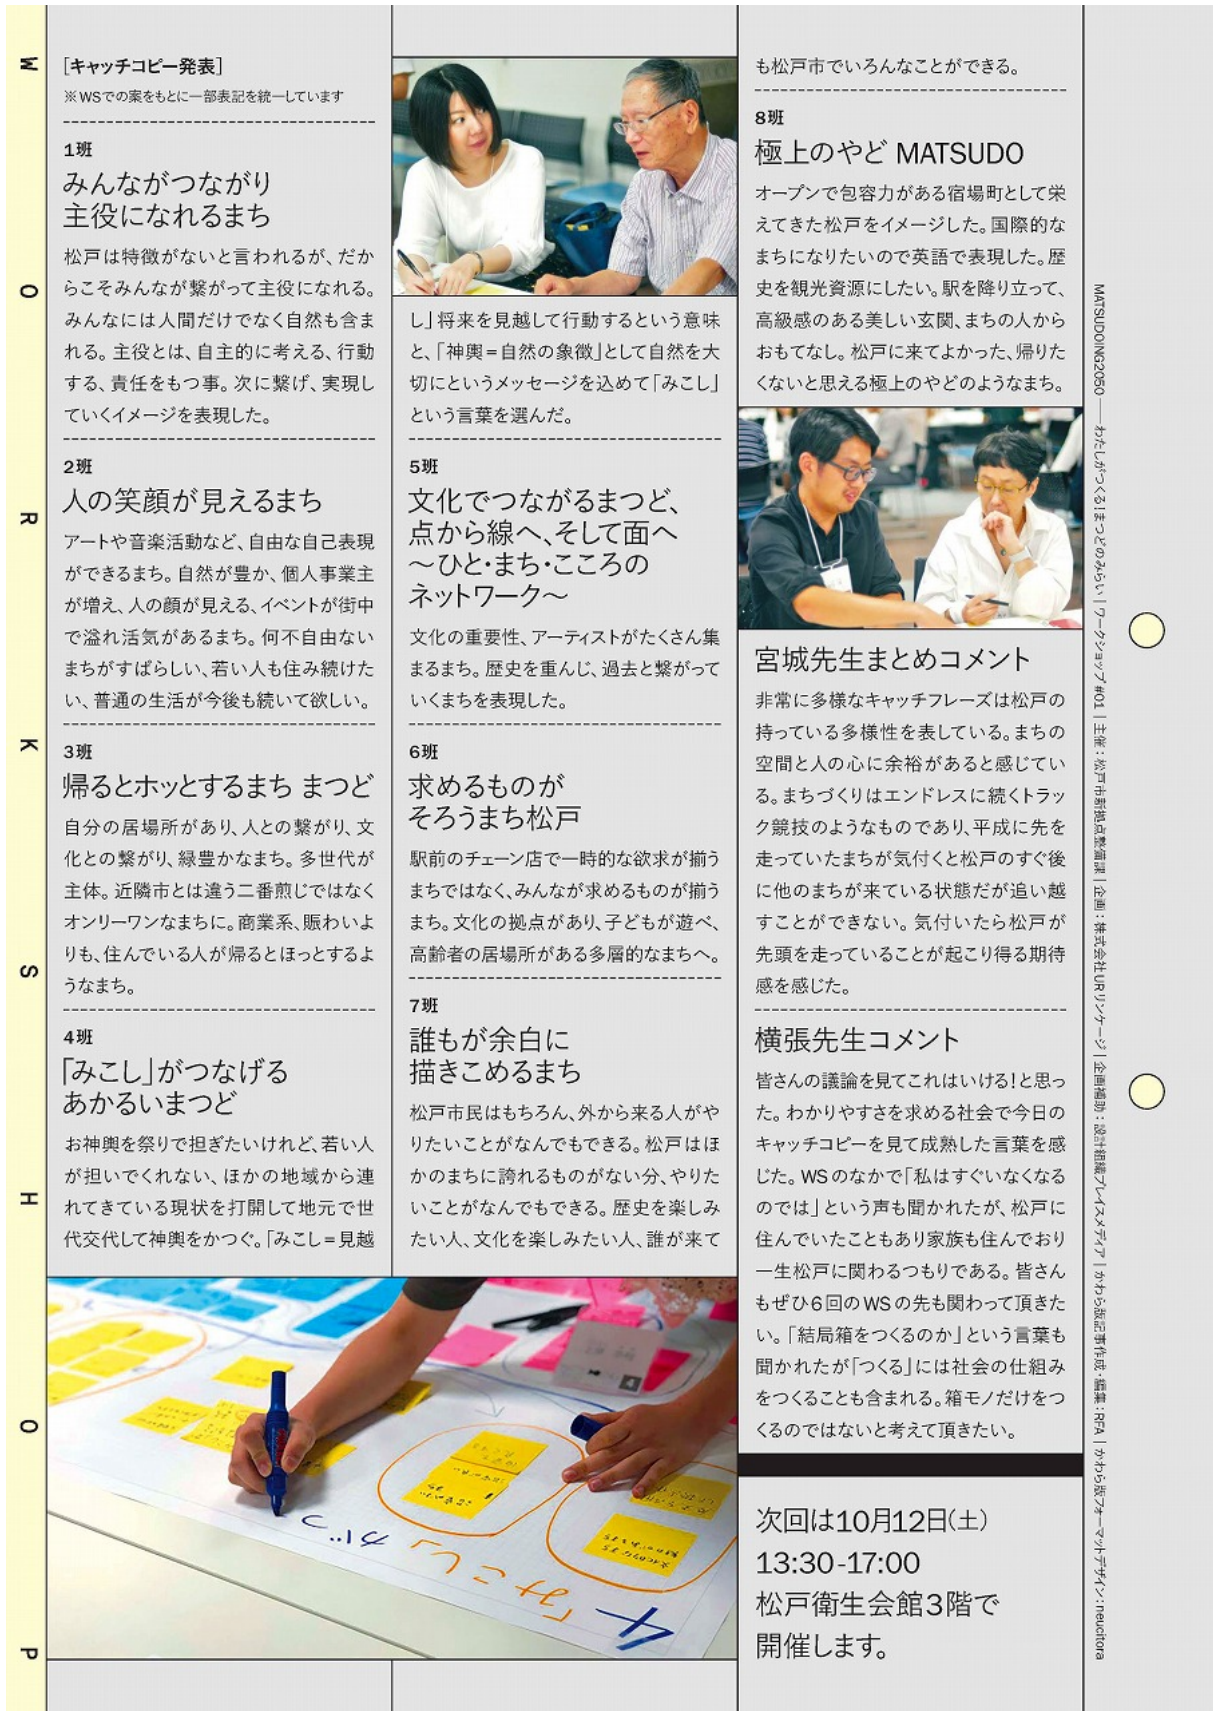 WORKSHOP
［キャッチコピー発表］
※WSでの案をもとに一部表記を統一しています
1班
みんながつながり
主役になれるまち
松戸は特徴がないと言われるが、だか
らこそみんなが繋がって主役になれる。
みんなには人間だけでなく自然も含ま
れる。主役とは、自主的に考える、行動
する、責任をもつ事。次に繋げ、実現し
ていくイメージを表現した。
2班
人の笑顔が見えるまち
アートや音楽活動など、自由な自己表現
ができるまち。自然が豊か、個人事業主
が増え、人の顔が見える、イベントが街中
で溢れ活気があるまち。何不自由ない
まちがすばらしい、若い人も住み続けた
い、普通の生活が今後も続いて欲しい。
3班
帰るとホッとするまち まつど
自分の居場所があり、人との繋がり、文
化との繋がり、緑豊かなまち。多世代が
主体。近隣市とは違う二番煎じではなく
オンリーワンなまちに。商業系、賑わいよ
りも、住んでいる人が帰るとほっとするよ
うなまち。
4班
「みこし」がつなげる
あかるいまつど
お神輿を祭りで担ぎたいけれど、若い人
が担いでくれない、ほかの地域から連
れてきている現状を打開して地元で世
代交代して神輿をかつぐ。「みこし＝見越
し」将来を見越して行動するという意味
と、「神輿＝自然の象徴」として自然を大
切にというメッセージを込めて「みこし」
という言葉を選んだ。
5班
文化でつながるまつど、
点から線へ、そして面へ
〜ひと・まち・こころの
ネットワーク〜
文化の重要性、アーティストがたくさん集
まるまち。歴史を重んじ、過去と繋がって
いくまちを表現した。
6班
求めるものが
そろうまち松戸
駅前のチェーン店で一時的な欲求が揃う
まちではなく、みんなが求めるものが揃う
まち。文化の拠点があり、子どもが遊べ、
高齢者の居場所がある多層的なまちへ。
7班
誰もが余白に
描きこめるまち
松戸市民はもちろん、外から来る人がや
りたいことがなんでもできる。松戸はほ
かのまちに誇れるものがない分、やりた
いことがなんでもできる。歴史を楽しみ
たい人、文化を楽しみたい人、誰が来て
も松戸市でいろんなことができる。
8班
極上のやど MATSUDO
オープンで包容力がある宿場町として栄
えてきた松戸をイメージした。国際的な
まちになりたいので英語で表現した。歴
史を観光資源にしたい。駅を降り立って、
高級感のある美しい玄関、まちの人から
おもてなし。松戸に来てよかった、帰りた
くないと思える極上のやどのようなまち。
宮城先生まとめコメント
非常に多様なキャッチフレーズは松戸の
持っている多様性を表している。まちの
空間と人の心に余裕があると感じてい
る。まちづくりはエンドレスに続くトラッ
ク競技のようなものであり、平成に先を
走っていたまちが気付くと松戸のすぐ後
に他のまちが来ている状態だが追い越
すことができない。気付いたら松戸が
先頭を走っていることが起こり得る期待
感を感じた。
横張先生コメント
皆さんの議論を見てこれはいける！と思っ
た。わかりやすさを求める社会で今日の
キャッチコピーを見て成熟した言葉を感
じた。WSのなかで「私はすぐいなくなる
のでは」という声も聞かれたが、松戸に
住んでいたこともあり家族も住んでおり
一生松戸に関わるつもりである。皆さん
もぜひ6回のWSの先も関わって頂きた
い。「結局箱をつくるのか」という言葉も
聞かれたが「つくる」には社会の仕組み
をつくることも含まれる。箱モノだけをつ
くるのではないと考えて頂きたい。
次回は10月12日（土）
13:30-17:00
松戸衛生会館3階で
開催します。
4「みこし」がつ
MATSUDOING2050――わたしがつくる！まつどのみらい｜ワークショップ#01｜主催：松戸市新拠点整備課｜企画：株式会社URリンケージ｜企画補助：設計組織プレイスメディア｜かわら版記事作成・編集：RFA｜かわら版フォーマットデザイン：neucitora